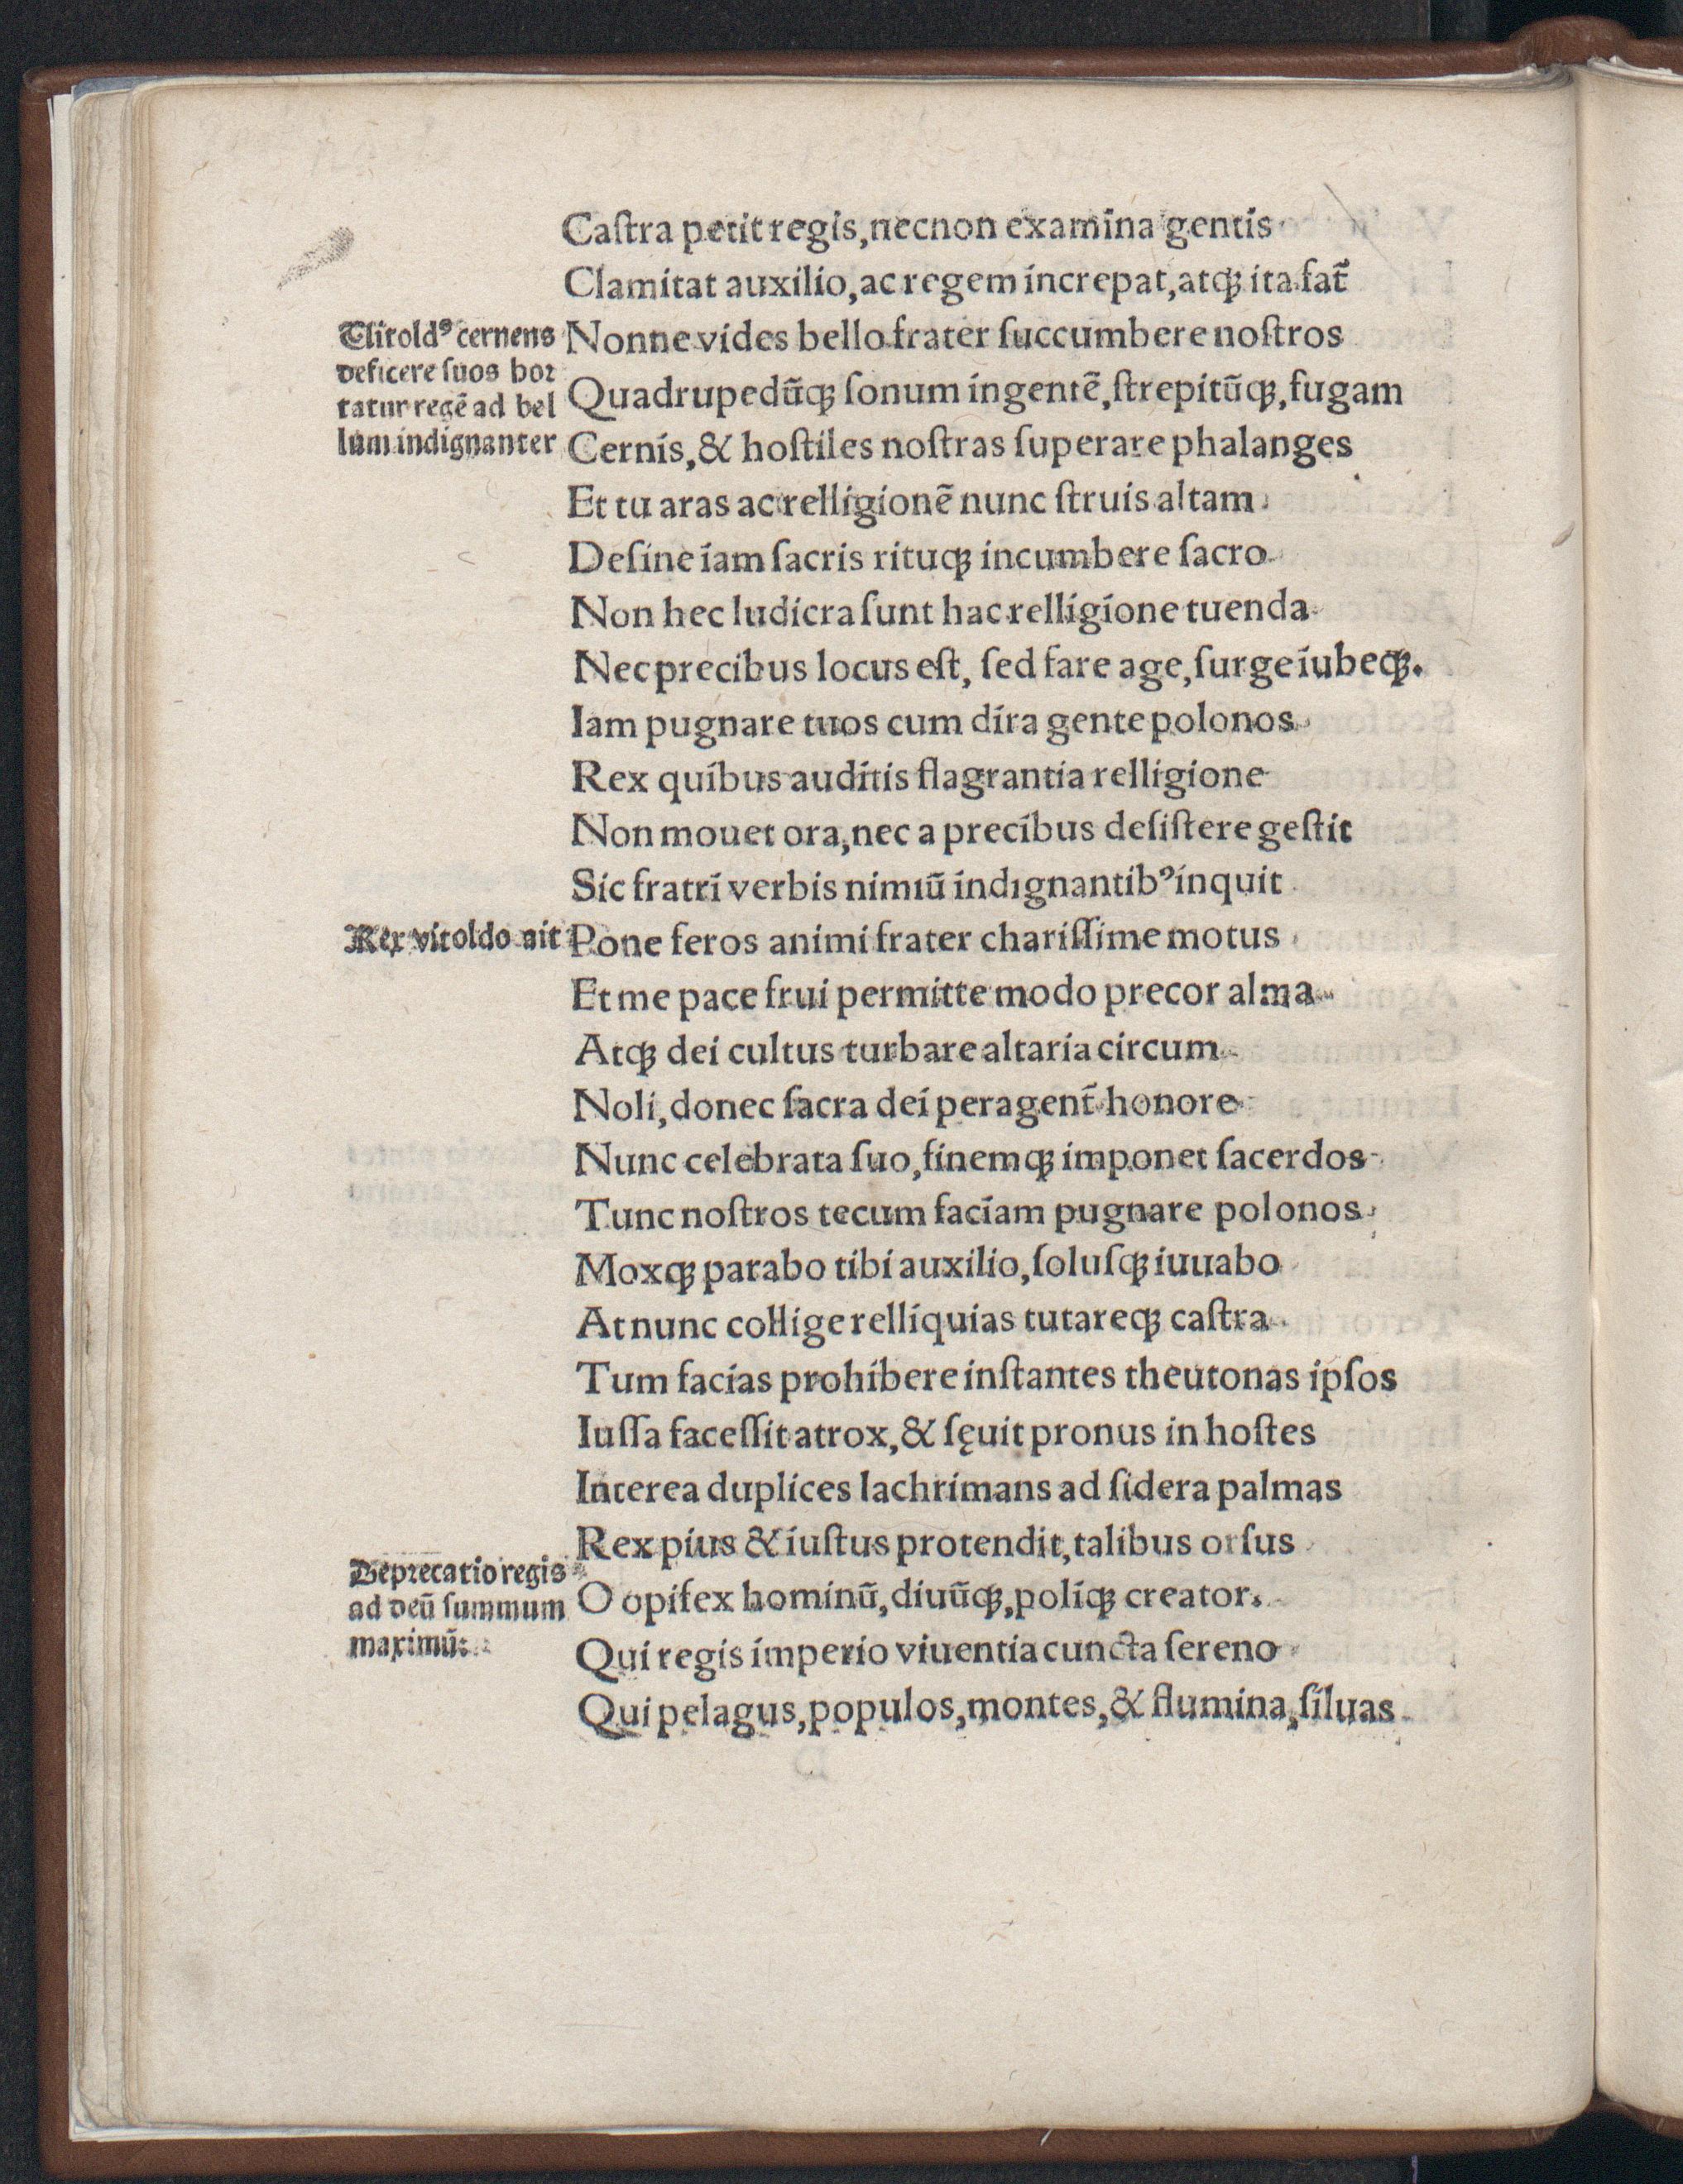 Caſtra petit regis,necnon examina gentis
Clamitat auxilio,ac regem increpat,atqꝫ ita fat̃
Vitoldꝰ cernens
deficere ſuos hoꝛ
tatur regẽ ad bel
lum indignanter
Nonne vides bello frater ſuccumbere noſtros
Quadrupedũqꝫ ſonum ingentẽ,ſtrepitũqꝫ,fugam
Cernis,& hoſtiles noſtras ſuperare phalanges
Et tu aras ac relligionẽ nunc ſtruis altam
Deſine iam ſacris rituqꝫ incumbere ſacro
Non hec ludicra ſunt hac relligione tuenda
Nec precibus locus eſt, ſed fare age,ſurge iubeqꝫ.
Iam pugnare tuos cum dira gente polonos
Rex quibus auditis flagrantia relligione
Non mouet ora,nec a precibus deſiſtere geſtit
Sic fratri verbis nimiũ indignantibꝰ inquit
Rex vitoldo ait
Pone feros animi frater chariſſime motus
Et me pace frui permitte modo precor alma
Atqꝫ dei cultus turbare altaria circum
Noli,donec ſacra dei peragent̃ honore
Nunc celebrata ſuo,finemqꝫ imponet ſacerdos
Tunc noſtros tecum faciam pugnare polonos
Moxqꝫ parabo tibi auxilio,ſoluſqꝫ iuuabo
At nunc collige relliquias tutareqꝫ caſtra
Tum facias prohibere inſtantes theutonas ipſos
Iuſſa faceſſit atrox,& ſęuit pronus in hoſtes
Interea duplices lachrimans ad ſidera palmas
Rex pius & iuſtus protendit,talibus orſus
Depꝛecatio regis
ad deũ ſummum
maximũ:
O opifex hominũ,diuũqꝫ,poliqꝫ creator.
Qui regis imperio viuentia cuncta ſereno
Qui pelagus,populos,montes,& flumina,ſiluas